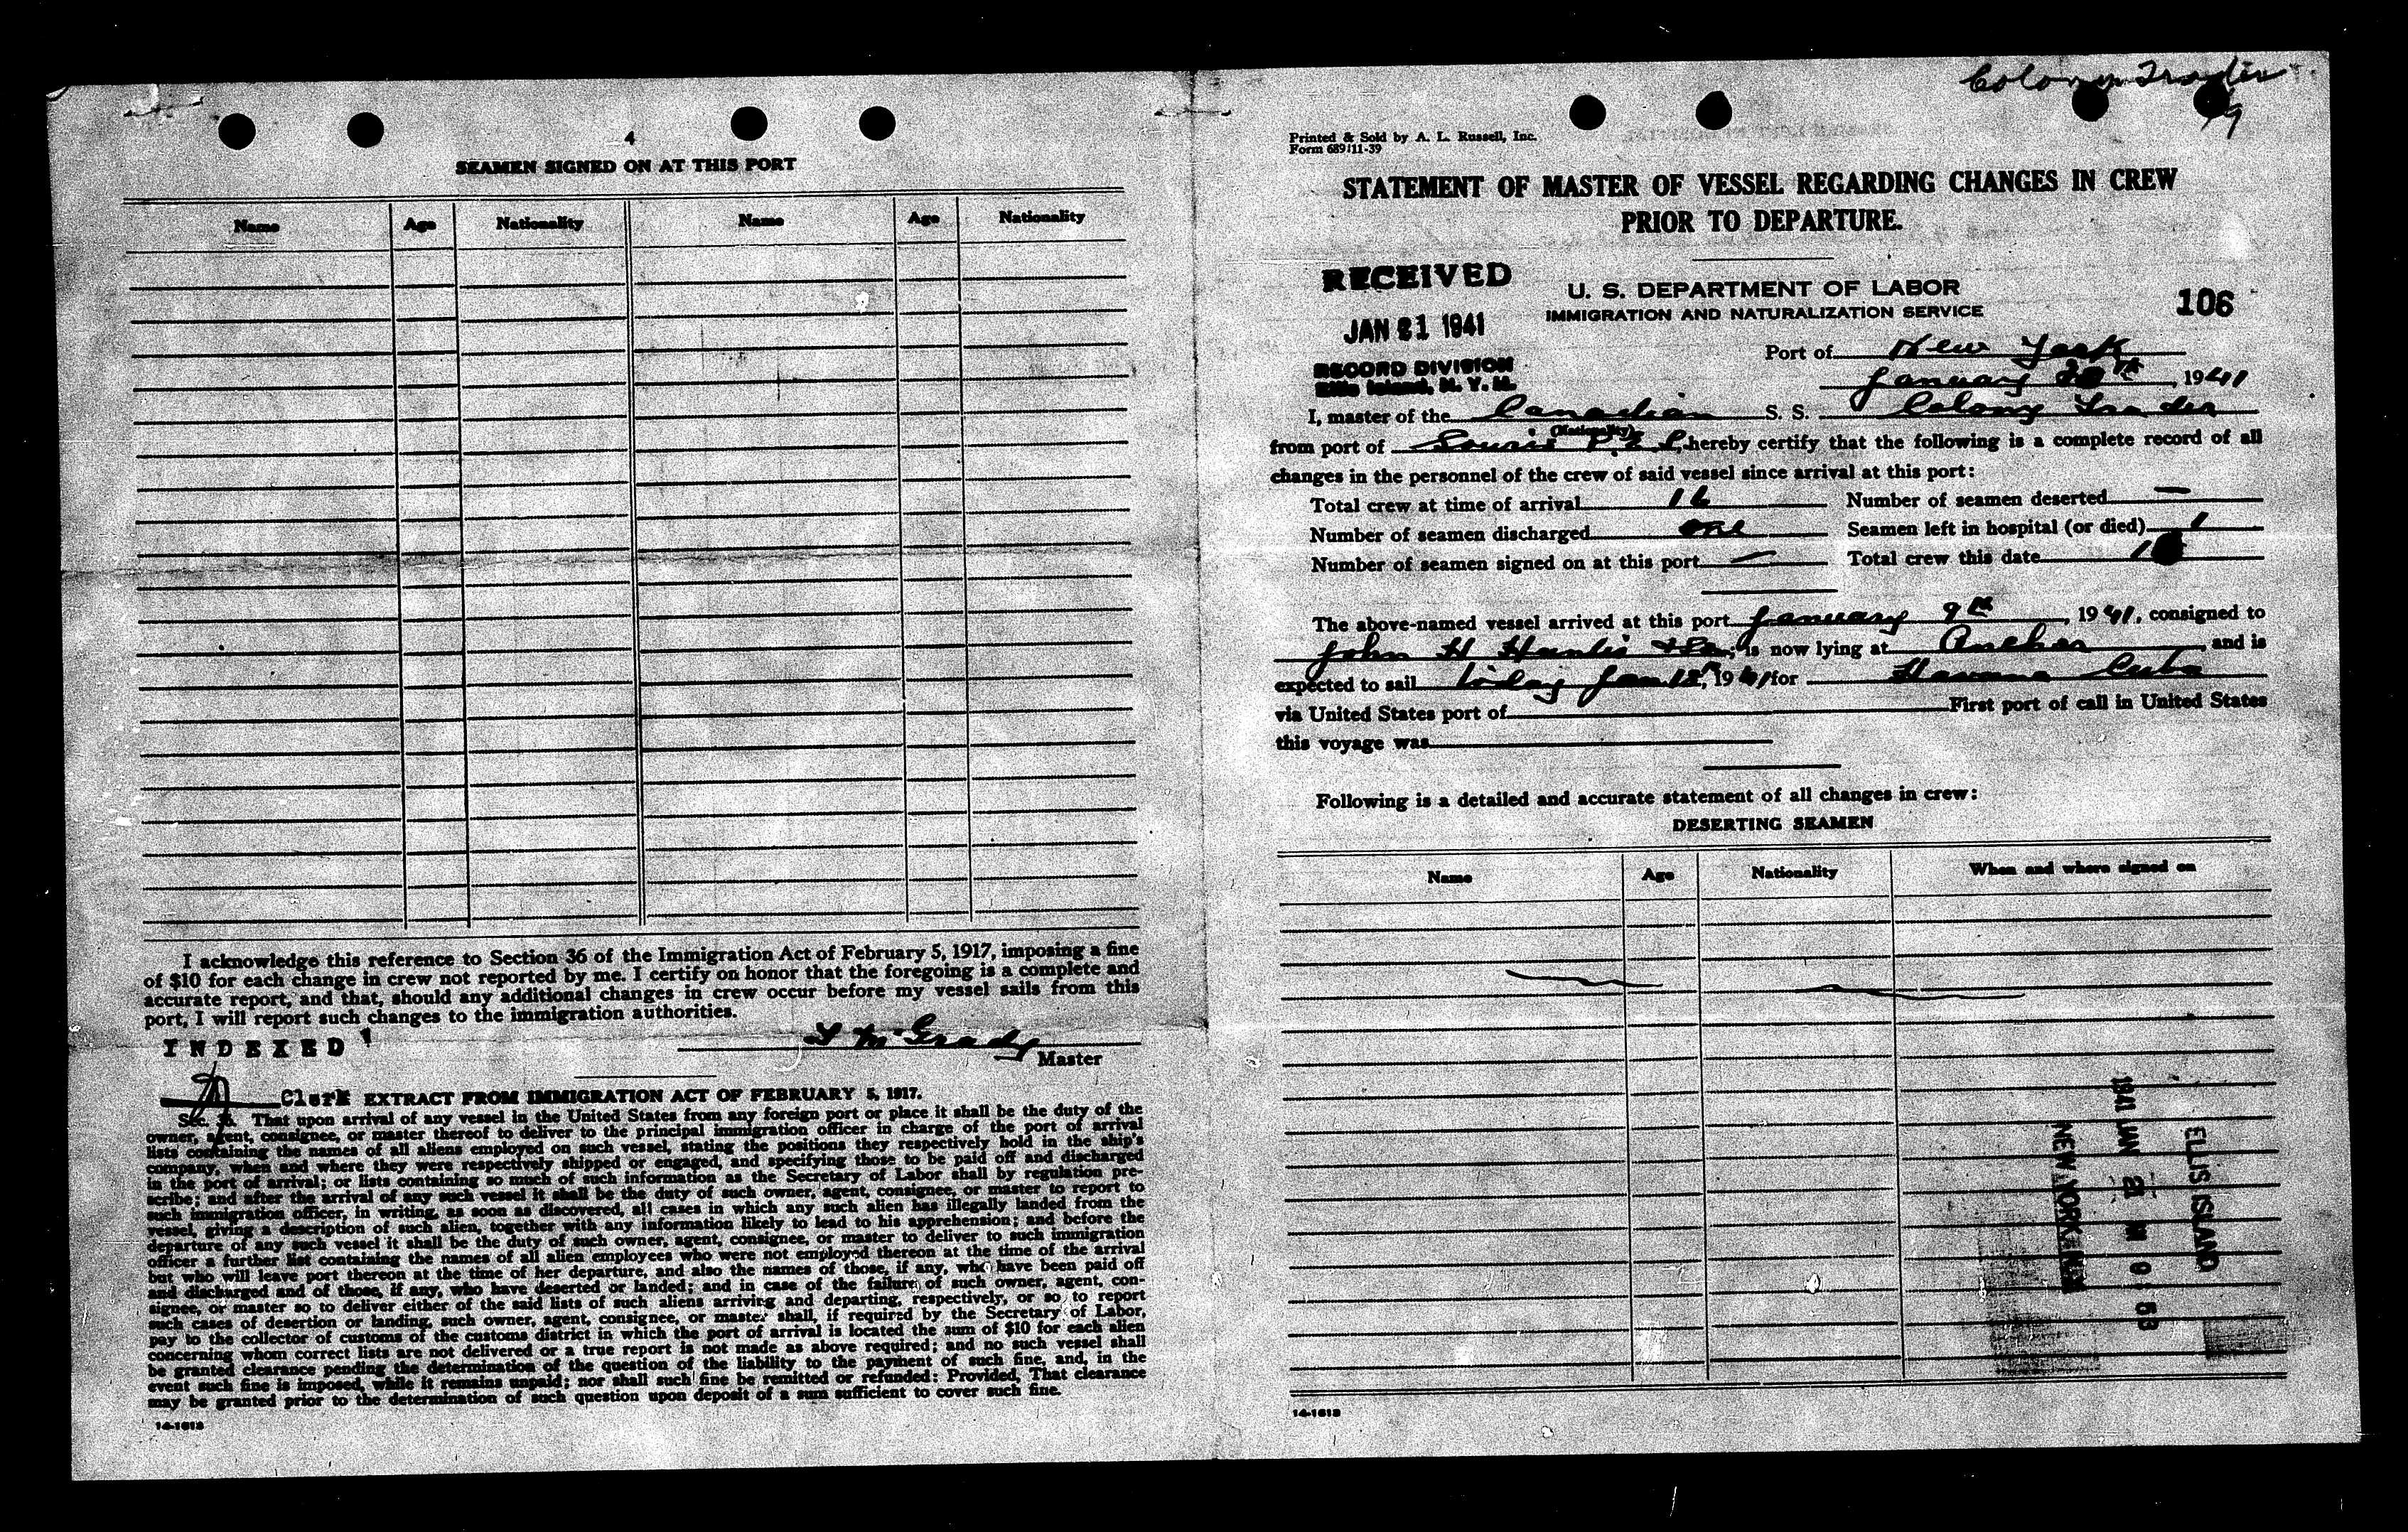 4
SEAMEN SIGNED ON AT THIS PORT
Name Age Nationality Name Age Nationality
I acknowledge this reference to Section 36 of the Immigration Act of February 5, 1917, imposing a fine
of $10 for each change in crew not reported by me. I certify on honor that the foregoing is a complete and
accurate report, and that, should any additional changes in crew occur before my vessel sails from this
port, I will report such changes to the immigration authorities.
INDEXED
Grady
Master
Clerk EXTRACT FROM IMMIGRATION ACT OF FEBRUARY 5, 1917.
Sec. 36. That upon arrival of any vessel in the United States from any foreign port or place it shall be the duty of the
owner, agent, consignee, or master thereof to deliver to the principal immigration officer in charge of the port of arrival
lists containing the names of all aliens employed on such vessel, stating the positions they respectively hold in the ship's
company, when and where they were respectively shipped or engaged, and specifying those to be paid off and discharged
in the port of arrival; or lists containing so much of such information as the Secretary of Labor shall by regulation pre-
scribe; and after the arrival of any such vessel it shall be the duty of such owner, agent, consignee, or master to report to
such immigration officer, in writing, as soon as discovered, all cases in which any such alien has illegally landed from the
vessel, giving a description of such alien, together with any information likely to lead to his apprehension; and before the
departure of any such vessel it shall be the duty of such owner, agent, consignee, or master to deliver to such immigration
officer a further list containing the names of all alien employees who were not employed thereon at the time of the arrival
but who will leave port thereon at the time of her departure, and also the names of those, if any, who have been paid off
and discharged and of those, if any, who have deserted or landed; and in case of the failure of such owner, agent, con-
signee, or master so to deliver either of the said lists of such aliens arriving and departing, respectively, or so to report
such cases of desertion or landing, such owner, agent, consignee, or master shall, if required by the Secretary of Labor,
pay to the collector of customs of the customs district in which the port of arrival is located the sum of $10 for each alien
concerning whom correct lists are not delivered or a true report is not made as above required; and no such vessel shall
be granted clearance pending the determination of the question of the liability to the payment of such fine, and, in the
event such fine is imposed, while it remains unpaid; nor shall such fine be remitted or refunded: Provided, That clearance
may be granted prior to the determination of such question upon deposit of a sum sufficient to cover such fine.
14-1613
Colony Trader
Printed & Sold by A. L. Russell, Inc.
Form 689 11-39
STATEMENT OF MASTER OF VESSEL REGARDING CHANGES IN CREW
PRIOR TO DEPARTURE.
RECEIVED
JAN 21 1941
RECORD DIVISION
Ellis Island, N. Y. H.
U. S. DEPARTMENT OF LABOR
IMMIGRATION AND NATURALIZATION SERVICE
106
Port of New York
January 20th, 1941
I, master of the Canadian S. S. Colony Trader
(Nationality)
from port of Souris P.E.I., hereby certify that the following is a complete record of all
changes in the personnel of the crew of said vessel since arrival at this port:
Total crew at time of arrival 16 Number of seamen deserted —
Number of seamen discharged one Seamen left in hospital (or died) 1
Number of seamen signed on at this port — Total crew this date
The above-named vessel arrived at this port January 9th, 1941, consigned to
John H ; is now lying at Anchor, and is
expected to sail Jan 18, 1941 for Havana Cuba
via United States port of First port of call in United States
this voyage was
Following is a detailed and accurate statement of all changes in crew:
DESERTING SEAMEN
Name Age Nationality When and where signed on
ELLIS ISLAND
1941 JAN 21 53
NEW YORK
14-1613